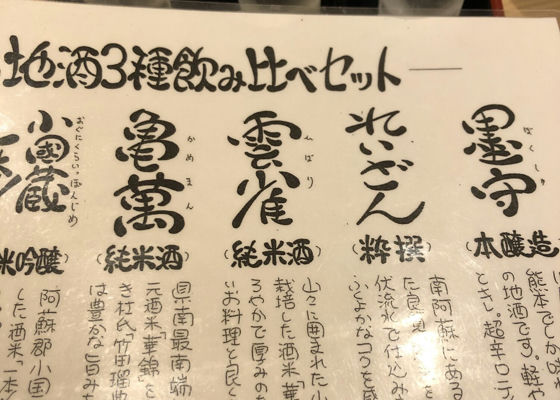 地酒3種飲み比べセット
墨守
ぼくしゅ
(本醸造
熊本でしか
の地酒です。軽や
ときし。超辛口
れいざん
(粋撰)
南阿蘇にある
た良
伏流水で仕込み
ふくよかなコクを
雲雀
ひばり
(純米酒)
山々に囲まれた小
栽培した酒米「華
ろやかで厚みのあ
いお料理と良く
亀萬
かめまん
(純米酒)
県南最南端
元酒米「華錦」を
き杜氏「竹田瑠典
は豊かな旨み
小國蔵
おぐにくらいっぽんじめ
米吟醸)
阿蘇郡小国
した酒米「一本